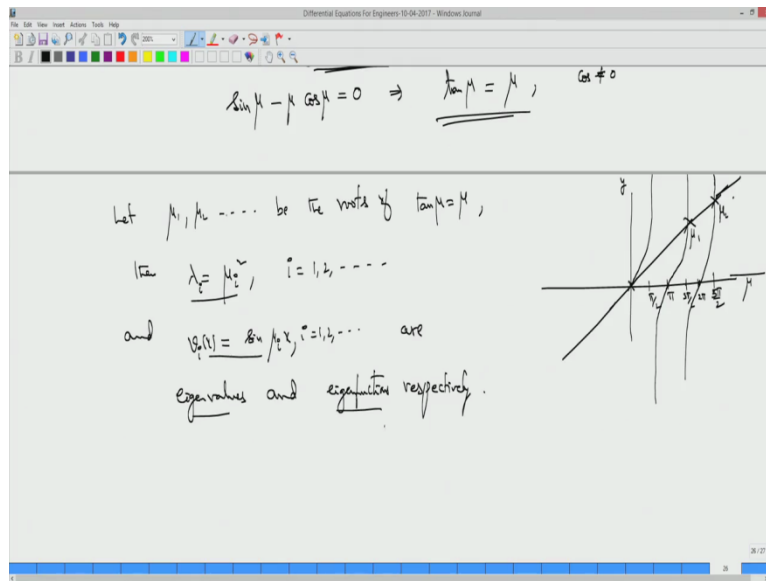 Differential Equations For Engineers-10-04-2017 - Windows Journal
File Edit View Insert Actions Tools Help
200%
B I
sin μ - μ cos μ = 0 ⇒ tan μ = μ , cos ≠ 0
Let μ₁, μ₂ ---- be the roots of tan μ = μ ,
then λᵢ = μᵢ², i = 1, 2, ----
and φᵢ(x) = sin μᵢ x, i = 1, 2, --- are
eigenvalues and eigenfunctions respectively.
y
μ₂
μ₁
π/2 π 3π/2 2π 5π/2 μ
26 / 27
26